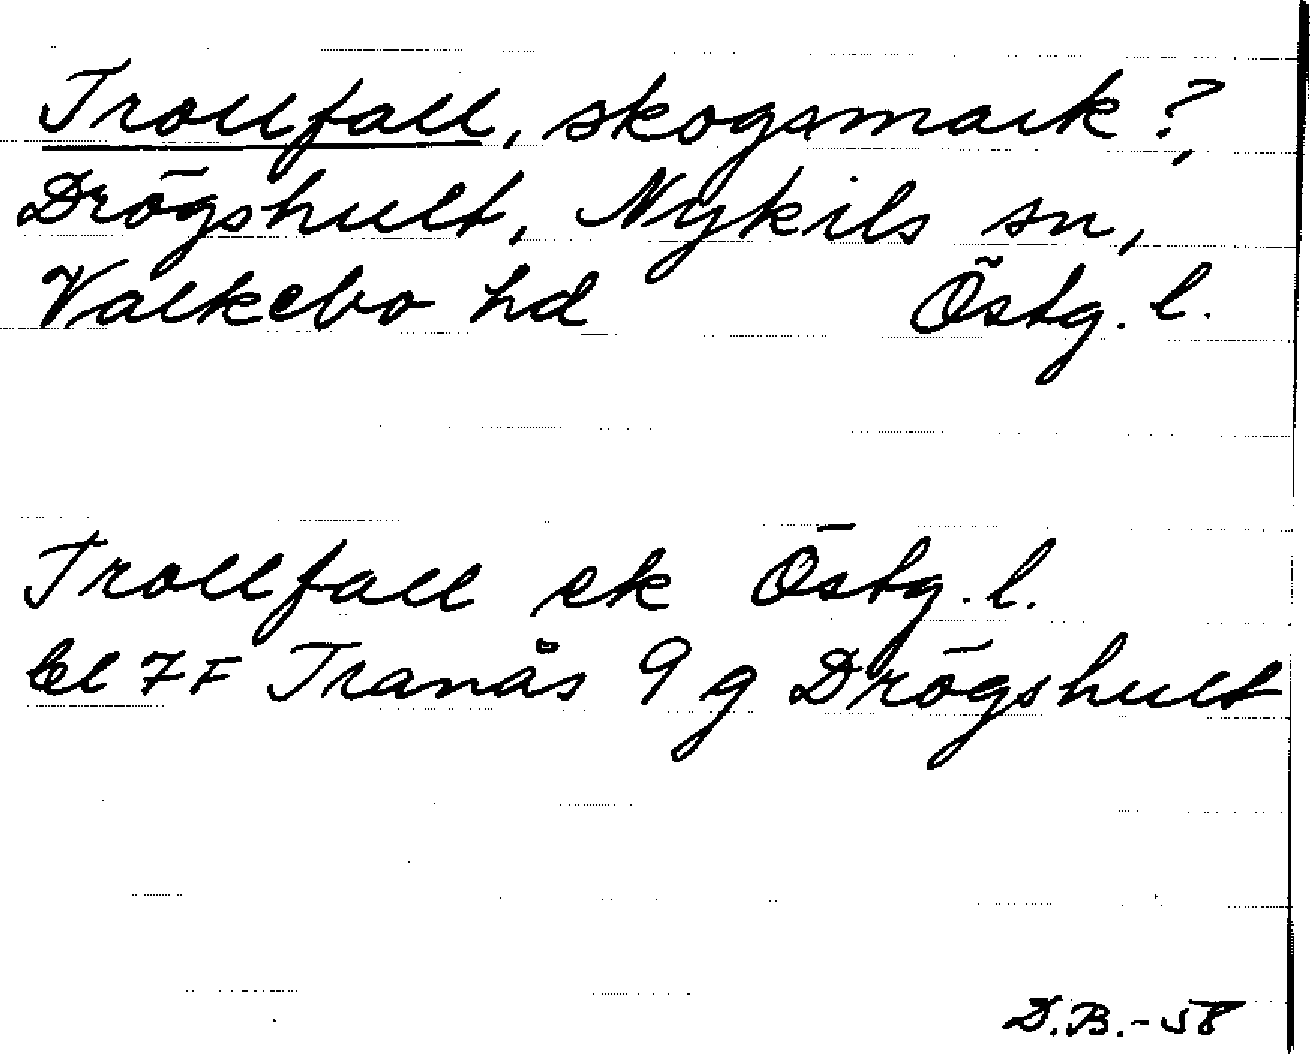 Trollfall, skogsmark?,
Drögshult, Nykils sn,
Valkebo hd Östg. l.
Trollfall ek Östg. l.
bl 7F Tranås 9 g Drögshult
D.B.-58